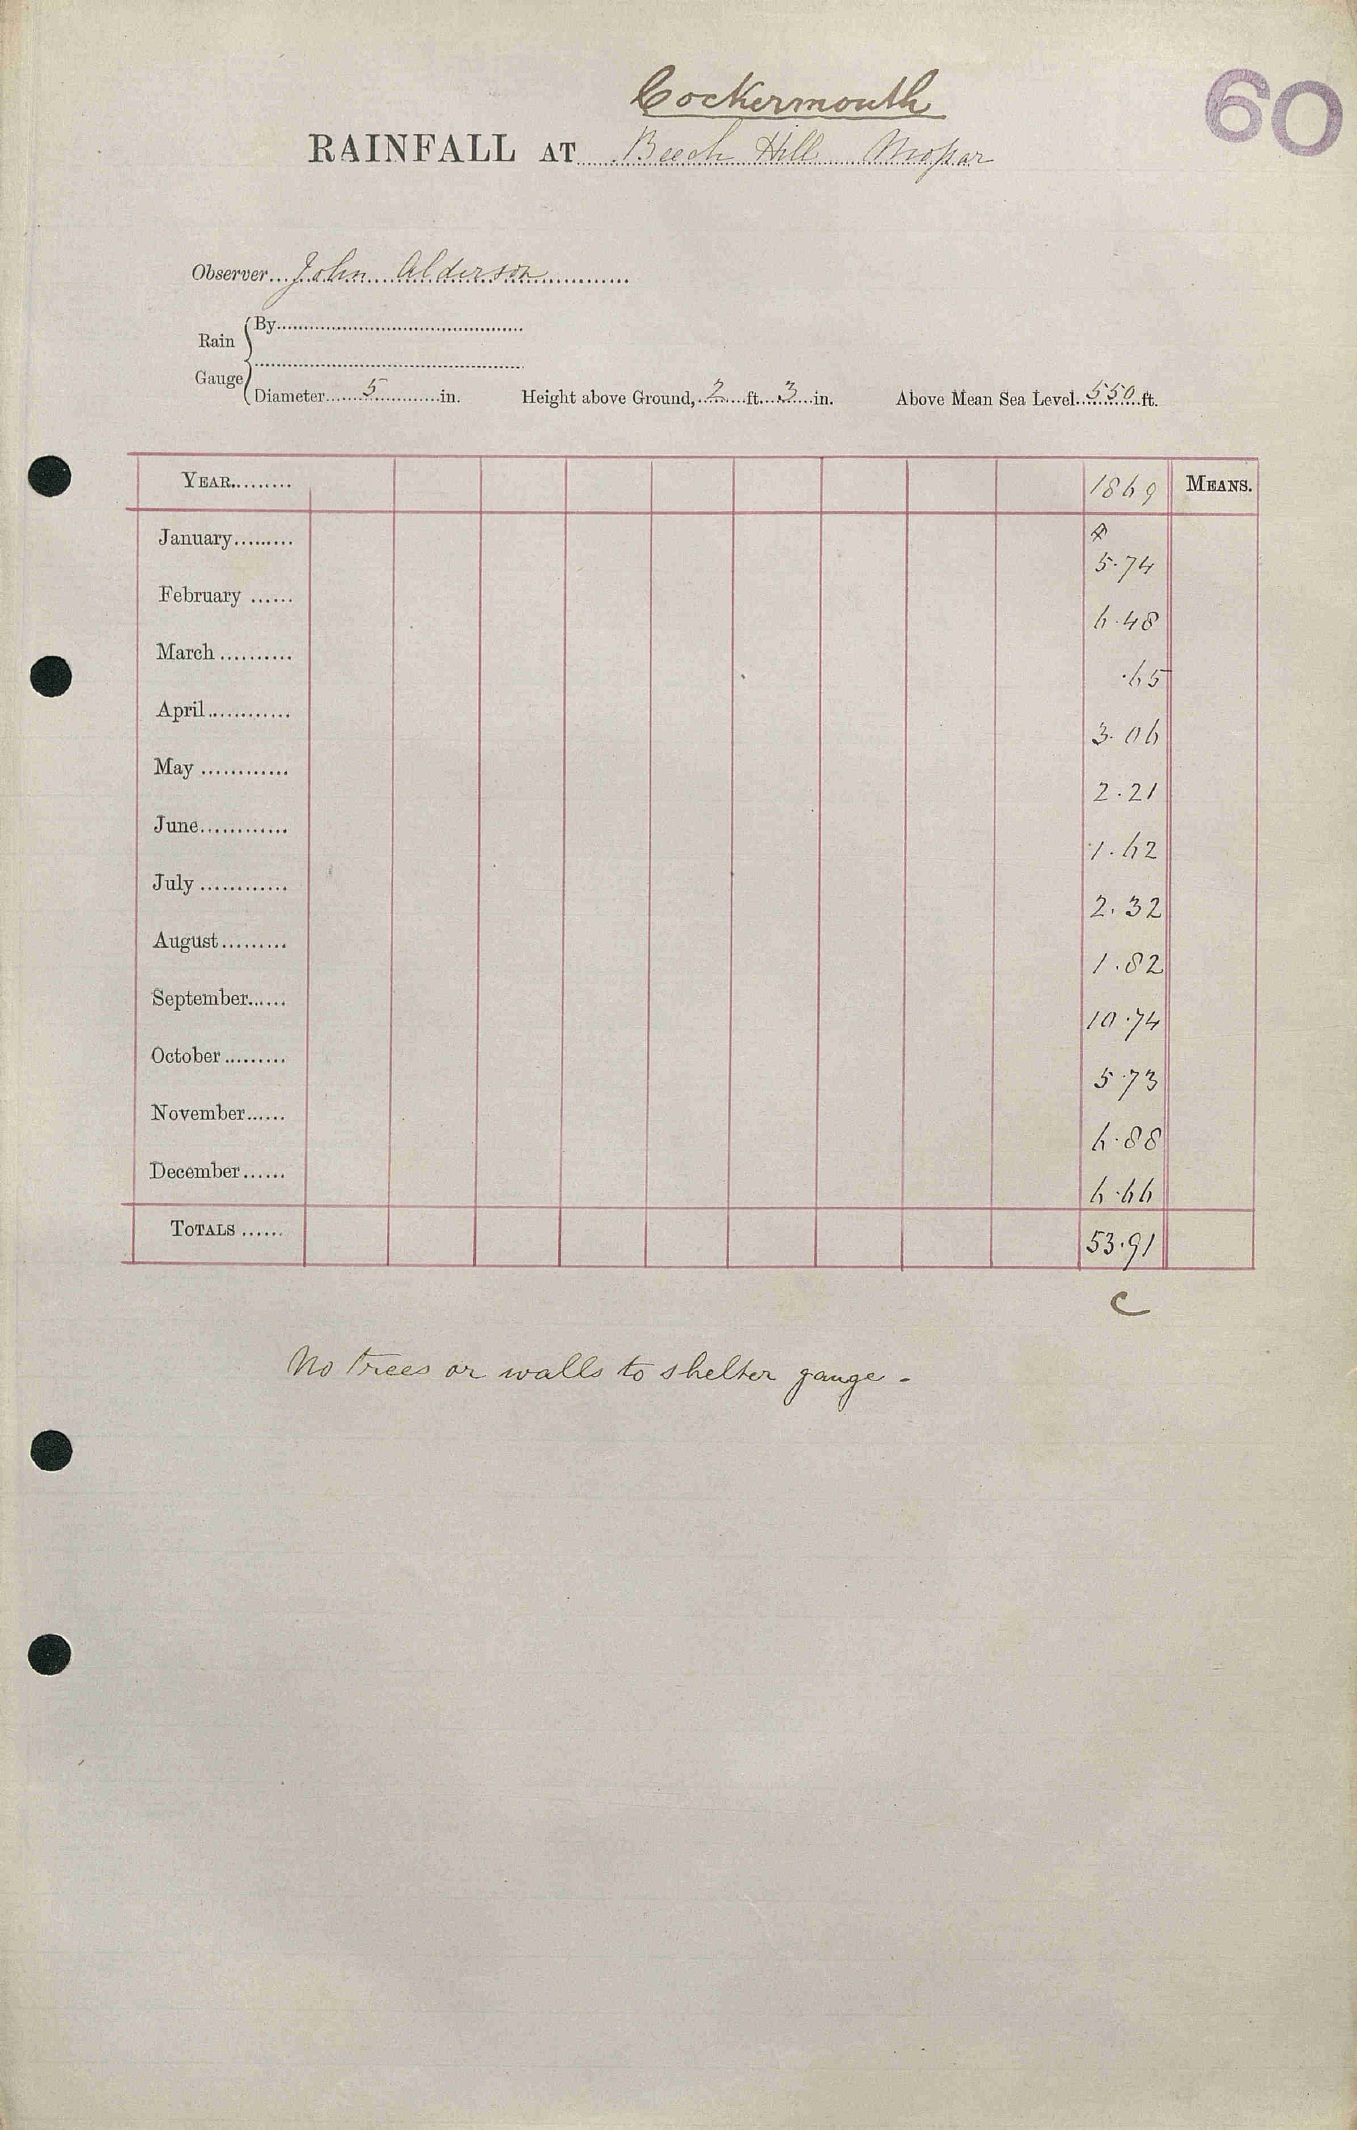 Cockermouth
60
RAINFALL AT Beech Hill Mosser
Observer John Alderson
Rain Gauge
By
Diameter 5 in. Height above Ground, 2 ft. 3 in. Above Mean Sea Level 550 ft.
YEAR 1869 MEANS.
January 5.74
February 6.48
March .65
April 3.06
May 2.21
June 1.62
July 2.32
August 1.82
September 10.74
October 5.73
November 6.88
December 6.66
TOTALS 53.91
C
No trees or walls to shelter gauge -